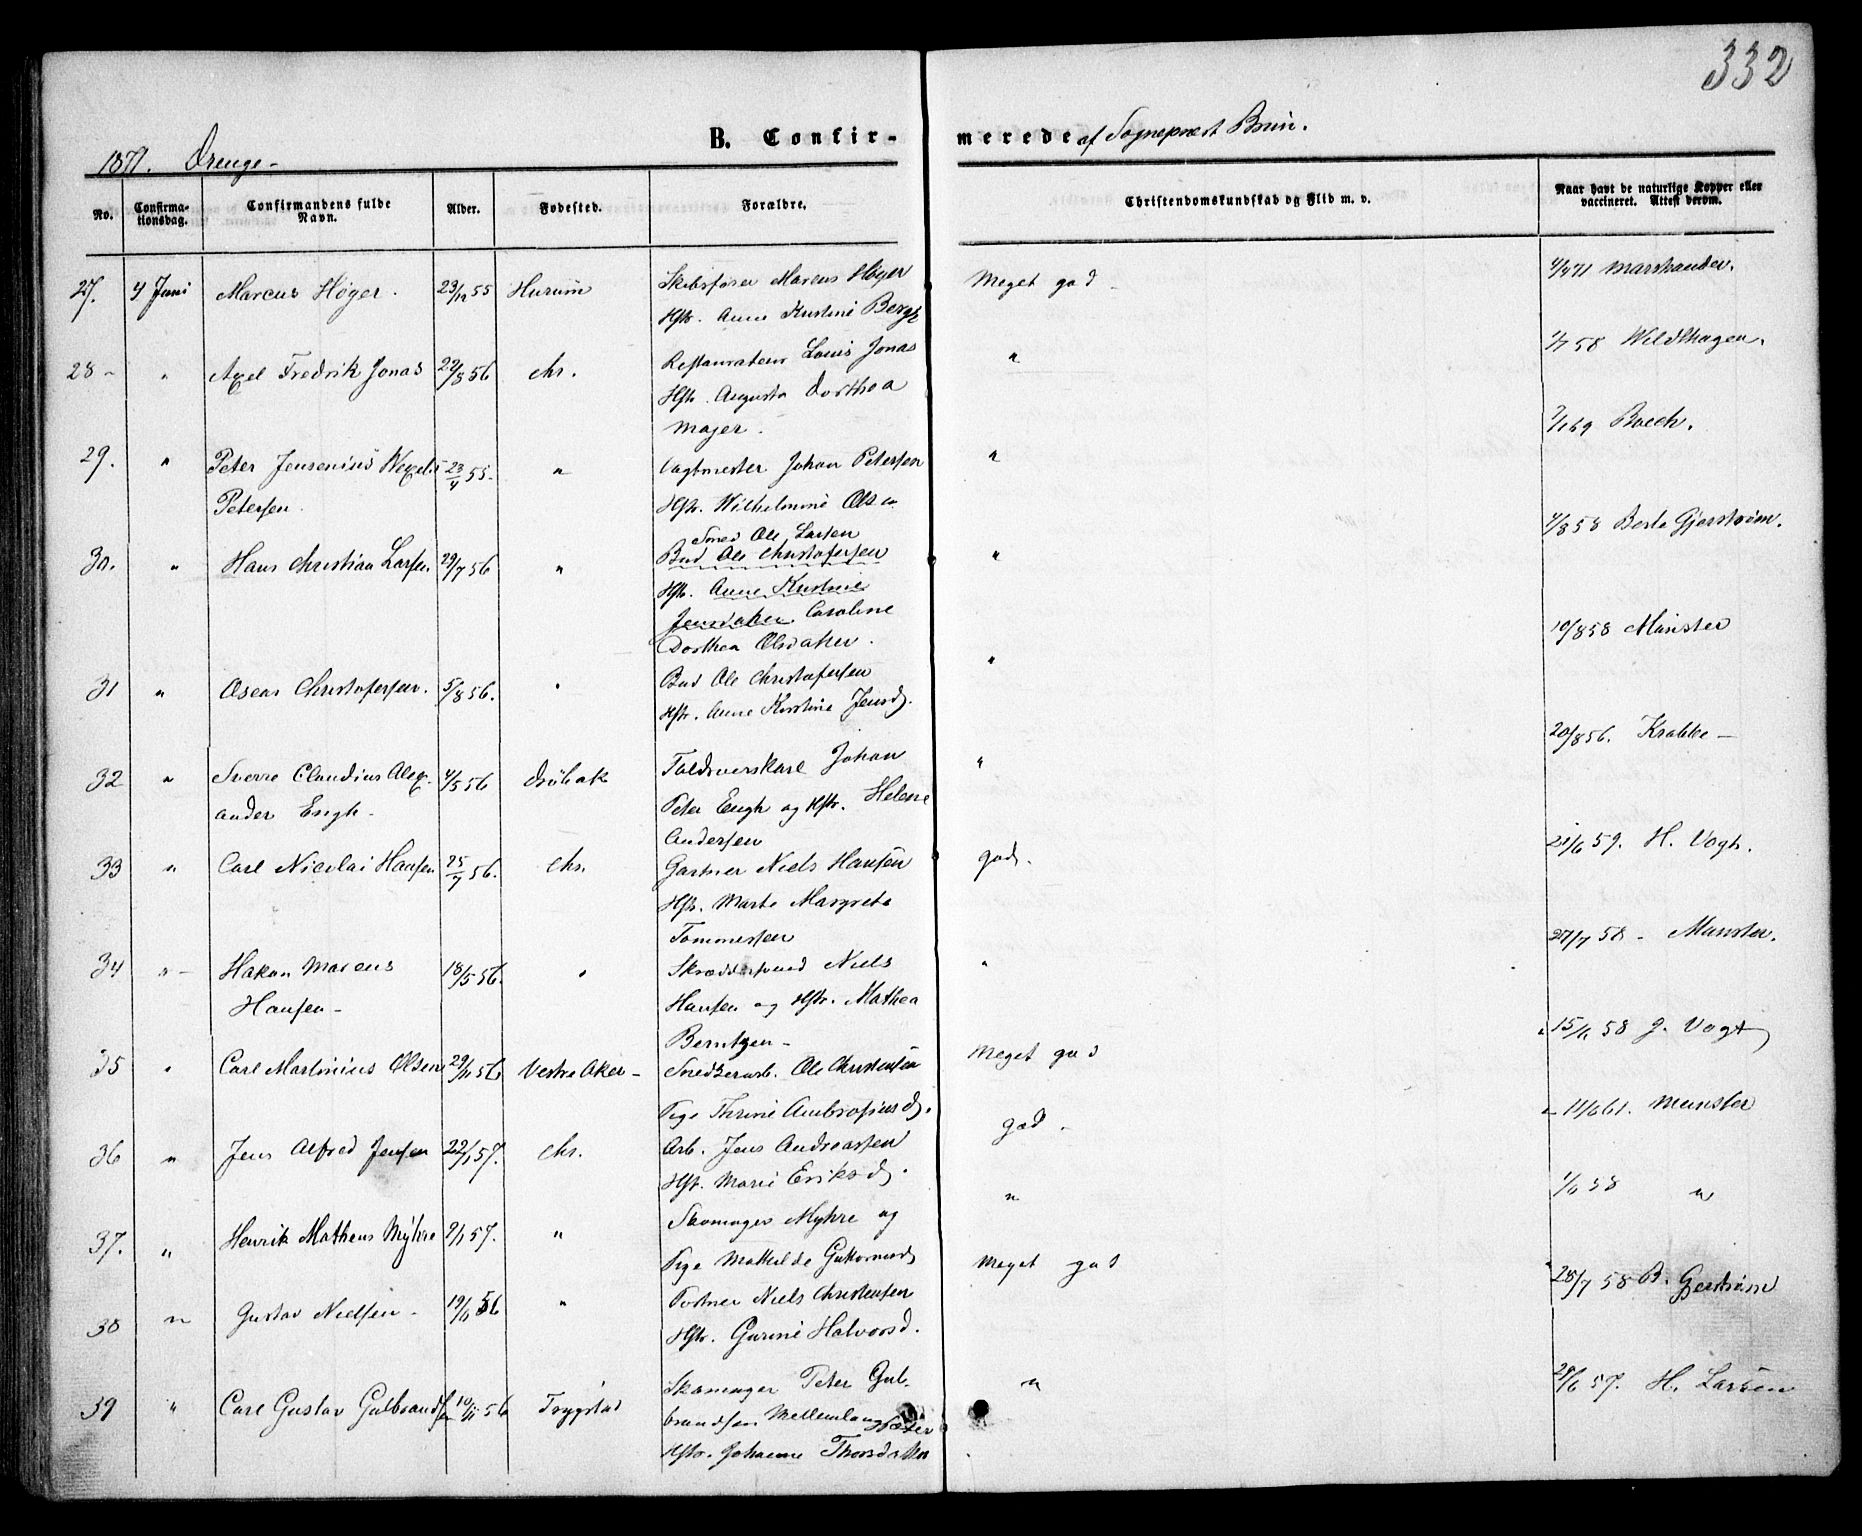 332
B. Confir-merede af Sognepræst Bruun.
1871. Drenge -
No. Confirmationsdag. Confirmandens fulde Navn. Alder. Fødested. Forældre. Christendomskundskab og Flid m. v. Naar havt de naturlige Kopper eller vaccineret. Attest derom.
27. 4 Juni Marcus Höger. 23/12 55 Hurum Skibsfører Marcus Höger Meget god - 4/4 71 Marthander.
Hstr. Anne Kristine Bergh
28 - " Axel Fredrik Jonas 22/8 56 Chr. Restaurateur Louis Jonas " 1/7 58 Wildhagen.
Hstr. Augusta Dorthea
Majer.
29. " Peter Jensenius Wexels 23/4 55. " Vagtmester Johan Petersen " 7/1 69 Boeck.
Petersen. Hstr. Wilhelmine Olsen
Sned. Ole Larsen
30. " Hans Christian Larsen 29/7 56 " Bud Ole Christofersen " 4/8 58 Berte Gjerstrøm.
Hstr. Anne Kristine
Jensdatter Caroline
Dorthea Olsdatter.
31 " Oscar Christofersen. 5/8 56. " Bud Ole Christofersen " 10/8 58 Münster
Hstr. Anne Kirstine Jensd.
32 " Sverre Claudius Alex- 4/5 56 Drøbak Toldroerskarl Johan " 20/8 56. Krabbe -
ander Engh. Peter Engh og Hstr. Helene
Andersen
33 " Carl Nicolai Hansen 25/7 56. Chr. Gartner Niels Hansen god. 21/6 59. H. Vogt.
Hstr. Marte Margrete
Tommesen
34 " - Hakon Marcus 18/5 56. " Skrædersvend Niels " 27/7 58 - Münster.
Hansen - Hansen og Hstr. Mathea
Berntzen -
35 " Carl Martinius Olsen 29/11 56 Vestre Aker - Snedkerarb. Ole Christensen Meget god " 15/6 58 J. Vogt
Pige Thrine Ambrosiusd.
36 " Jens Alfred Jensen 22/1 57. Chr. Arb. Jens Andreassen god - " 11/6 61. Münster
Hst. Marie Eriksd.
37. " Henrik Matheus Myhre 9/1 57. " Skomager Myhre og " 1/6 58 "
Pige Mathilde Guttormsd
38 " Gustav Nielsen - 19/11 56 " Portner Niels Christensen Meget god 28/7 58 B. Gjerstrøm
Hstr. Gurine Halvorsd.
39 " Carl Gustav Gulbrandsen 10/11 56 Trygstad Skomager Peter Gul- " 29/6 57. H. Larsen
brandsen Mellemlangsæter
Hstr. Johanne Thorsdatter